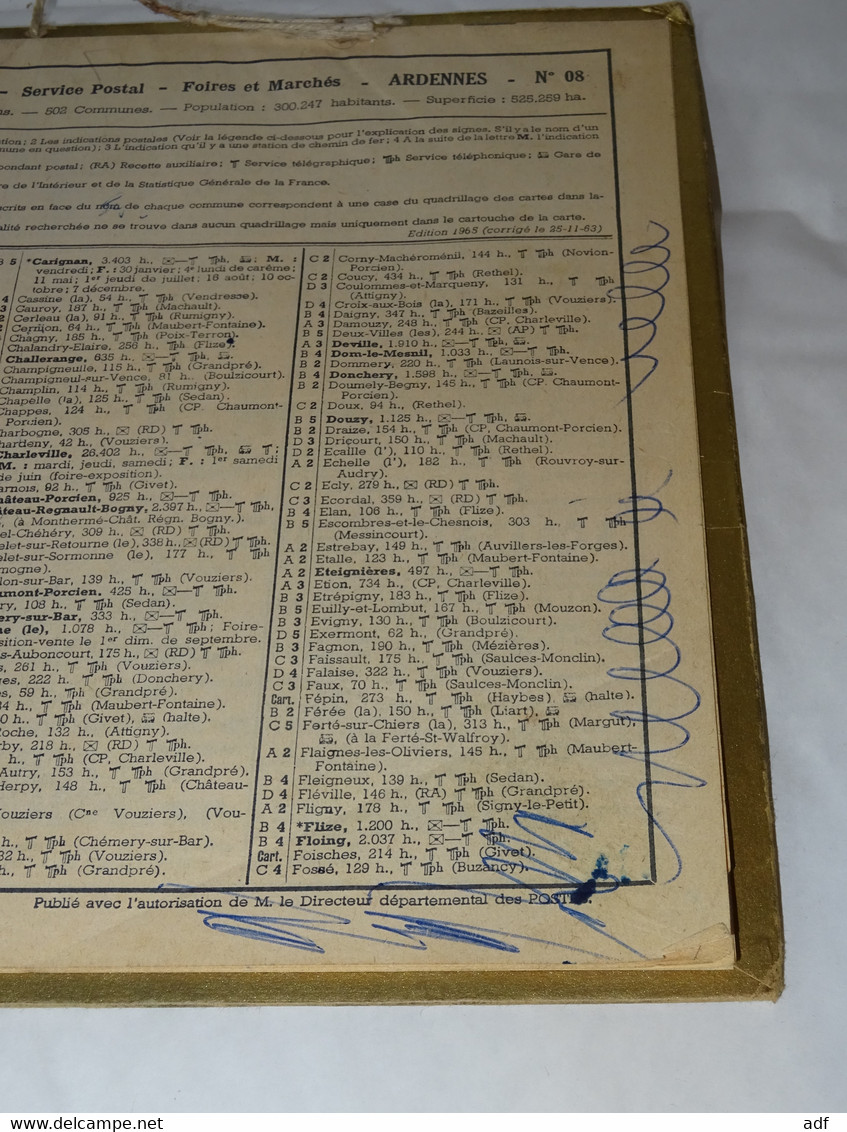 - Service Postal - Foires et Marchés - ARDENNES - N° 08
ns. — 502 Communes. — Population : 300.247 habitants. — Superficie : 525.259 ha.
ction ; 2 Les indications postales (Voir la légende ci-dessous pour l'explication des signes. S'il y a le nom d'un
mune en question) ; 3 L'indication qu'il y a une station de chemin de fer ; 4 A la suite de la lettre M. l'indication
pondant postal ; (RA) Recette auxiliaire ; Service télégraphique ; Service téléphonique ; Gare de
re de l'Intérieur et de la Statistique Générale de la France.
scrits en face du nom de chaque commune correspondent à une case du quadrillage des cartes dans la-
alité recherchée ne se trouve dans aucun quadrillage mais uniquement dans le cartouche de la carte.
Edition 1965 (corrigé le 25-11-63)
B 5 *Carignan, 3.403 h., Tph, M. :
vendredi ; F. : 30 janvier ; 4e lundi de carême ;
11 mai ; 1er jeudi de juillet ; 16 août ; 10 oc-
tobre ; 7 décembre.
4 Cassine (la), 54 h., T Tph (Vendresse).
3 Cauroy, 187 h., T Tph (Machault).
2 Cerleau (la), 91 h., T Tph (Rumigny).
2 Cernion, 64 h., T Tph (Maubert-Fontaine).
Chagny, 185 h., T Tph (Poix-Terron).
Chalandry-Elaire, 256 h., Tph (Flize).
Challerange, 635 h., T Tph,
Champigneulle, 115 h., T Tph (Grandpré).
Champigneul-sur-Vence, 81 h., (Boulzicourt).
Champlin, 114 h., T Tph (Rumigny).
Chapelle (la), 125 h., T Tph (Sedan).
Chappes, 124 h., T Tph (CP. Chaumont-
Porcien).
harbogne, 305 h., (RD) T Tph.
hardeny, 42 h., (Vouziers).
Charleville, 26.402 h., Tph, T ;
M. : mardi, jeudi, samedi ; F. : 1er samedi
de juin (foire-exposition).
arnois, 92 h., T Tph (Givet).
hâteau-Porcien, 925 h., T Tph.
âteau-Regnault-Bogny, 2.397 h., T Tph,
, (à Monthermé-Chât. Régn. Bogny.).
el-Chéhéry, 309 h., (RD) T Tph.
elet-sur-Retourne (le), 338 h., (RD) T Tph.
elet-sur-Sormonne (le), 177 h., T Tph
mogne).
lon-sur-Bar, 139 h., T Tph (Vouziers).
aumont-Porcien, 425 h., T Tph.
ry, 108 h., T Tph (Sedan).
ery-sur-Bar, 333 h., T Tph.
ne (le), 1.078 h., T Tph ; Foire-
osition-vente le 1er dim. de septembre.
s-Auboncourt, 175 h., (RD) T Tph.
s, 261 h., T Tph (Vouziers).
ges, 222 h. T Tph (Donchery).
es, 59 h., T Tph (Grandpré).
34 h., T Tph (Maubert-Fontaine).
0 h., T Tph (Givet), (halte).
Roche, 132 h., (Attigny).
rby, 218 h., (RD) T Tph.
h., T Tph (CP, Charleville).
Autry, 153 h., T Tph (Grandpré).
Herpy, 148 h., T Tph (Château-
Vouziers (Cne Vouziers), (Vou-
h., T Tph (Chémery-sur-Bar).
32 h., T Tph (Vouziers).
h., T Tph (Grandpré).
C 2 Corny-Machéroménil, 144 h., T Tph (Novion-
Porcien).
C 2 Coucy, 434 h., T Tph (Rethel).
D 3 Coulommes-et-Marqueny, 131 h., T Tph
(Attigny).
D 4 Croix-aux-Bois (la), 171 h., T Tph (Vouziers).
B 4 Daigny, 347 h., T Tph (Bazeilles).
A 3 Damouzy, 248 h., T Tph (CP. Charleville).
B 5 Deux-Villes (les), 244 h., (AP) T Tph.
A 3 Deville, 1.910 h., T Tph,
B 4 Dom-le-Mesnil, 1.033 h., T Tph.
B 2 Dommery, 220 h., T Tph (Launois-sur-Vence).
B 4 Donchery, 1.598 h., T Tph,
B 2 Doumely-Begny, 145 h., T Tph (CP. Chaumont-
Porcien).
C 2 Doux, 94 h., (Rethel).
B 5 Douzy, 1.125 h., T Tph,
B 2 Draize, 154 h., T Tph (CP, Chaumont-Porcien).
D 3 Dricourt, 150 h., T Tph (Machault).
D 2 Ecaille (l'), 110 h., T Tph (Rethel).
A 2 Echelle (l'), 182 h., T Tph (Rouvroy-sur-
Audry).
C 2 Ecly, 279 h., (RD) T Tph.
C 3 Ecordal, 359 h., (RD) T Tph.
B 4 Elan, 106 h., T Tph (Flize).
B 5 Escombres-et-le-Chesnois, 303 h., T Tph
(Messincourt).
A 2 Estrebay, 149 h., T Tph (Auvillers-les-Forges).
A 2 Etalle, 123 h., T Tph (Maubert-Fontaine).
A 2 Eteignières, 497 h., T Tph.
A 3 Etion, 734 h., (CP, Charleville).
B 3 Etrépigny, 183 h., T Tph (Flize).
B 5 Euilly-et-Lombut, 167 h., T Tph (Mouzon).
B 3 Evigny, 130 h., T Tph (Boulzicourt).
D 5 Exermont, 62 h., (Grandpré).
B 3 Fagnon, 190 h., T Tph (Mézières).
C 3 Faissault, 175 h., T Tph (Saulces-Monclin).
D 4 Falaise, 322 h., T Tph (Vouziers).
C 3 Faux, 70 h., T Tph (Saulces-Monclin).
Cart. Fépin, 273 h., T Tph (Haybes) (halte).
B 2 Férée (la), 150 h., T Tph (Liart),
C 5 Ferté-sur-Chiers (la), 313 h., T Tph (Margut),
(à la Ferté-St-Walfroy).
A 2 Flaignes-les-Oliviers, 145 h., T Tph (Maubert-
Fontaine).
B 4 Fleigneux, 139 h., T Tph (Sedan).
D 4 Fléville, 146 h., (RA) T Tph (Grandpré).
A 2 Fligny, 178 h., T Tph (Signy-le-Petit).
B 4 *Flize, 1.200 h., T Tph.
B 4 Floing, 2.037 h., T Tph.
Cart. Foisches, 214 h., T Tph (Givet).
C 4 Fossé, 129 h., T Tph (Buzancy).
Publié avec l'autorisation de M. le Directeur départemental des POSTES.
www.delcampe.net
adf